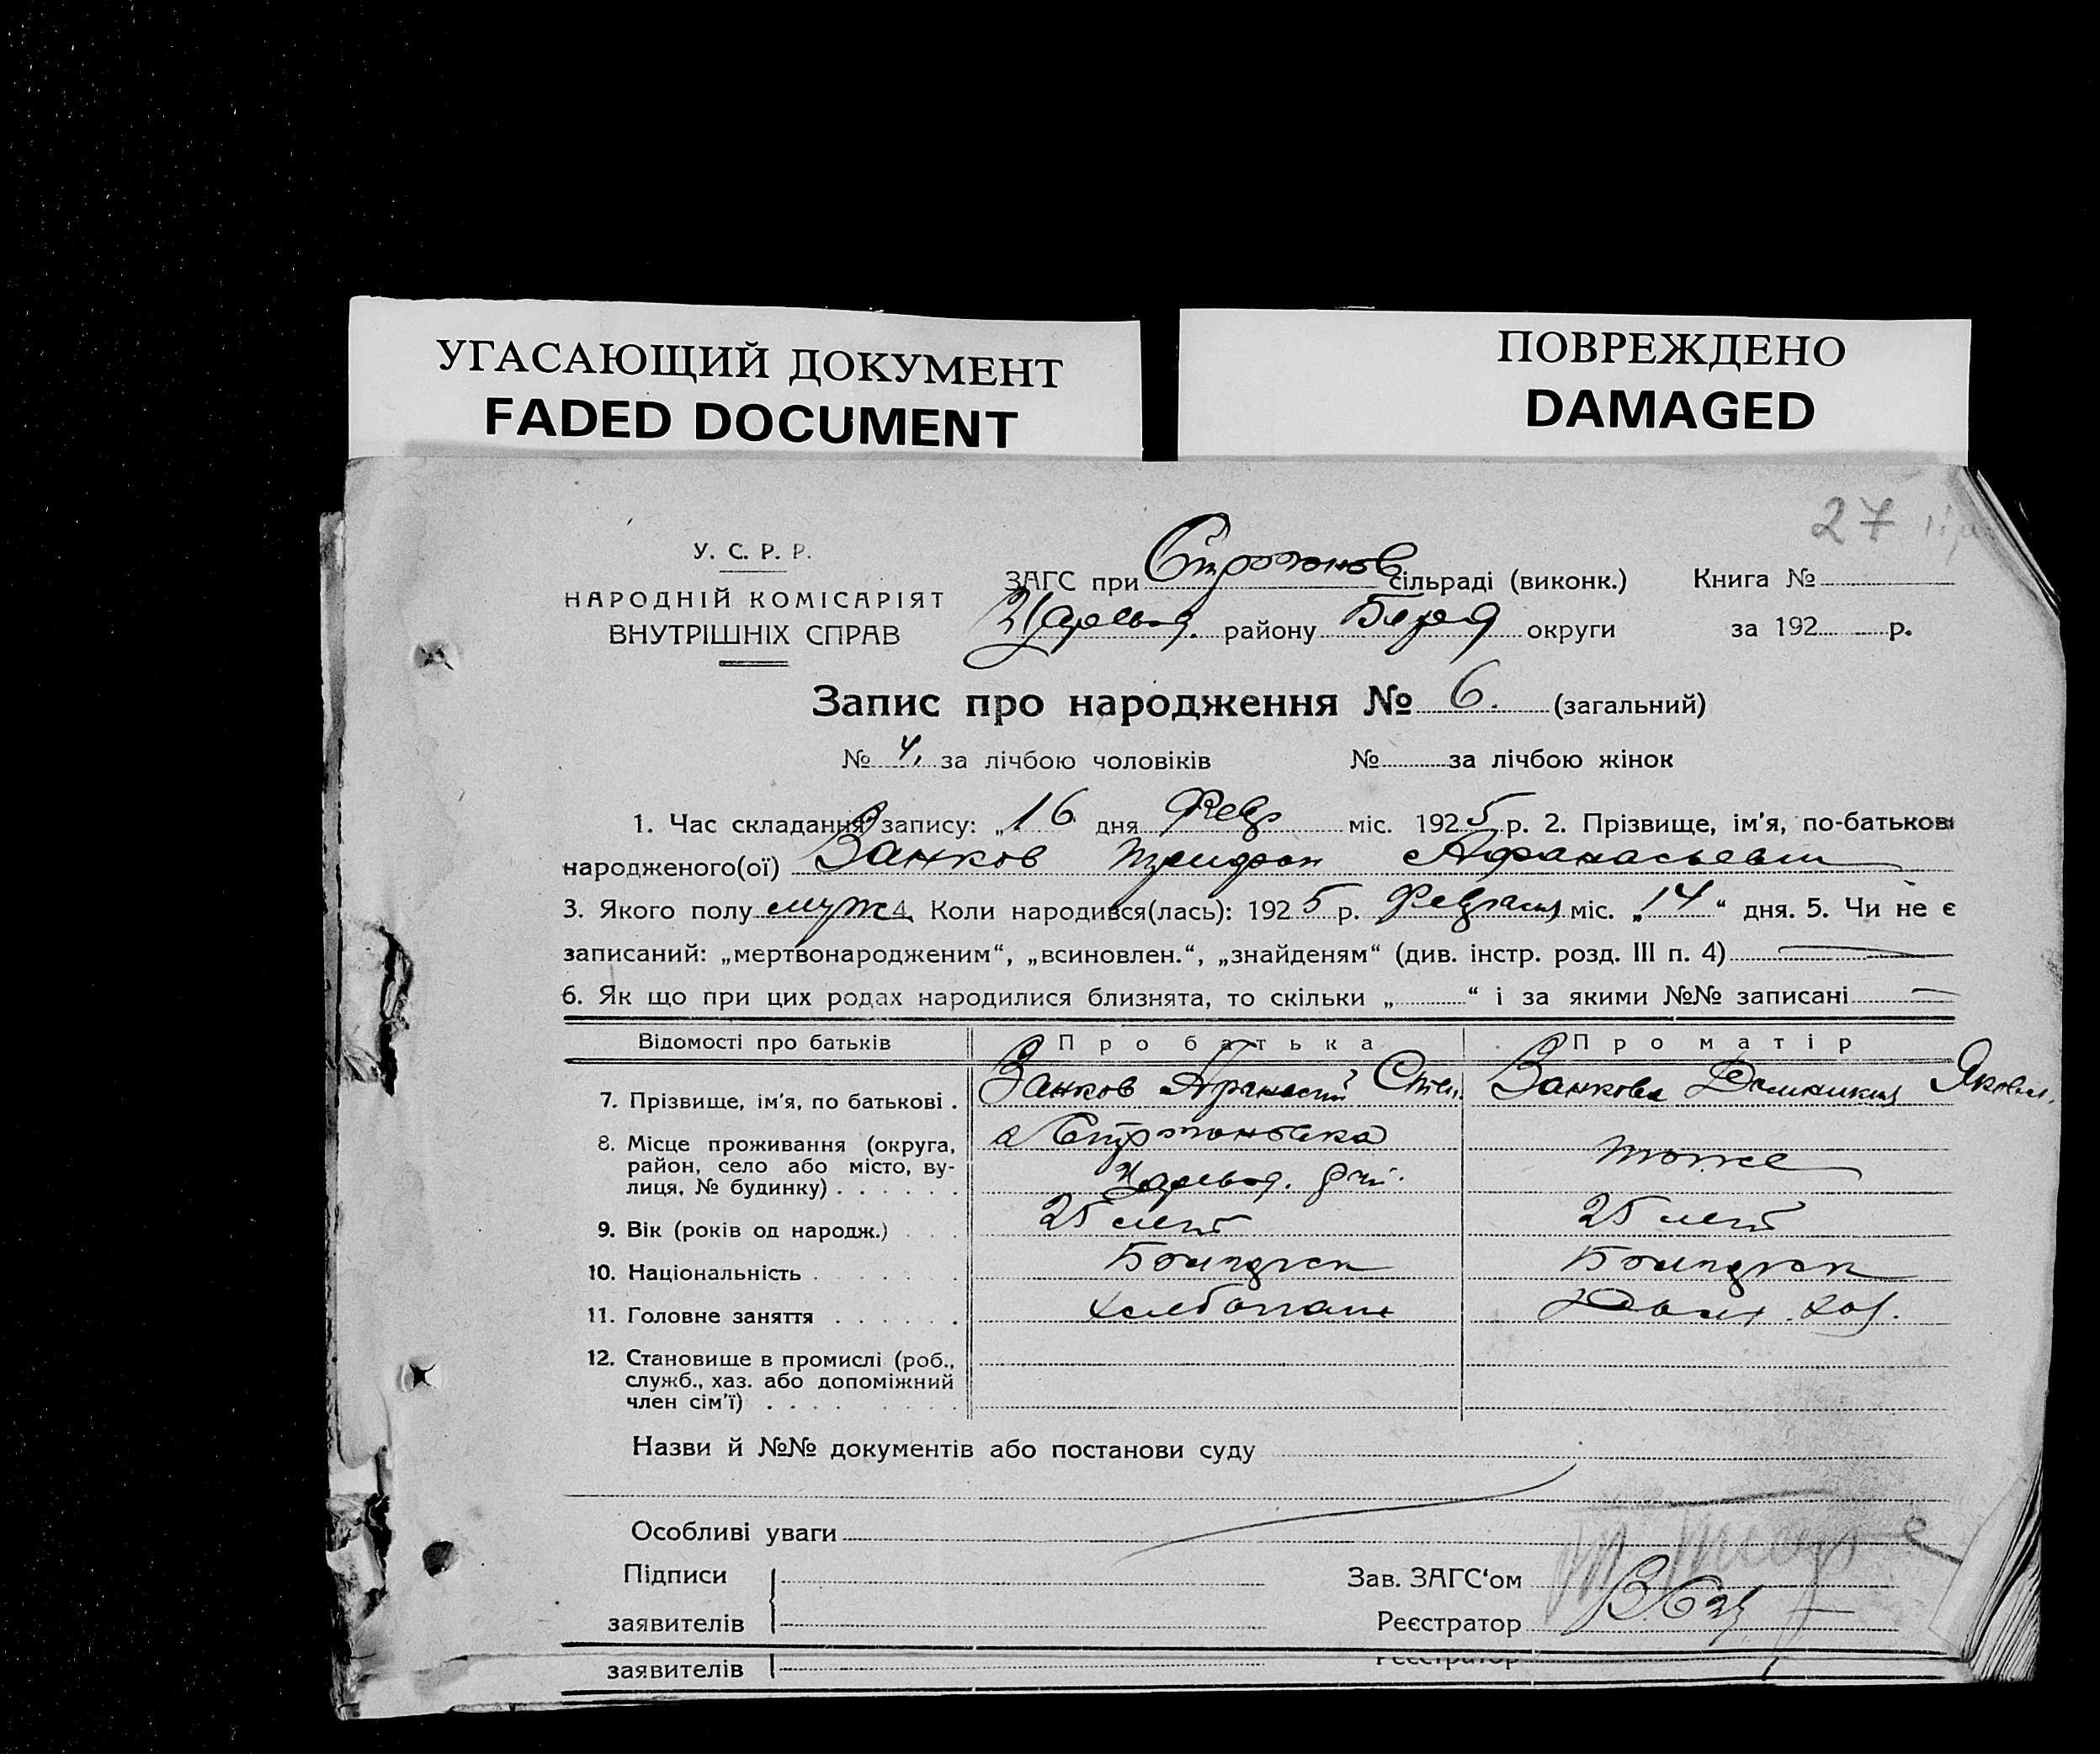 УГАСАЮЩИЙ ДОКУМЕНТ
FADED DOCUMENT
ПОВРЕЖДЕНО
DAMAGED
27
У. С. Р. Р.
НАРОДНІЙ КОМІСАРІЯТ
ВНУТРІШНІХ СПРАВ
ЗАГС при сільраді (виконк.) Книга №
району округи за 192 р.
Запис про народження № 6. (загальний)
№ 4. за лічбою чоловіків № за лічбою жінок
1. Час складання запису: „ 16 дня Февр міс. 1925 р. 2. Прізвище, ім'я, по-батькові
народженого(ої) Занков Трифон Афанасьевич
3. Якого полу муж 4. Коли народився(лась): 1925 р. Февраля міс. „ 14 “ дня. 5. Чи не є
записаний: „мертвонародженим“, „всиновлен.“, „знайденям“ (див. інстр. розд. III п. 4)
6. Як що при цих родах народилися близнята, то скільки „ “ і за якими №№ записані
Відомості про батьків Про батька Про матір
7. Прізвище, ім'я, по батькові . Занков Афанасий Степ. Занкова Яковл.
8. Місце проживання (округа,
район, село або місто, ву-
лиця, № будинку) тоже
9. Вік (років од народж.) 25 лет 25 лет
10. Національність
11. Головне заняття хлебопаш Домаш. хоз.
12. Становище в промислі (роб.,
служб., хаз. або допоміжний
член сім'ї)
Назви й №№ документів або постанови суду
Особливі уваги
Підписи Зав. ЗАГС'ом
заявителів Реєстратор
заявителів Реєстратор